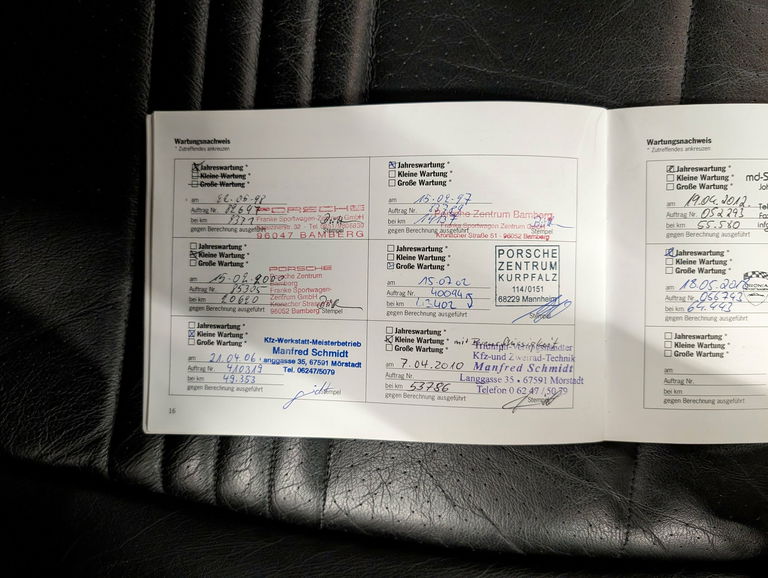 Wartungsnachweis
* Zutreffendes ankreuzen
Jahreswartung *
Kleine Wartung *
Große Wartung *
am
Auftrag Nr.
bei km
gegen Berechnung ausgeführt
PORSCHE
Franke Sportwagen- GmbH
96047 BAMBERG
Jahreswartung *
Kleine Wartung *
Große Wartung *
am 15.09.97
Auftrag Nr.
bei km
gegen Berechnung ausgeführt
Stempel
Porsche Zentrum Bamberg
Franke Sportwagen Zentrum GmbH
Kronacher Straße 51 · 96052 Bamberg
Jahreswartung *
Kleine Wartung *
Große Wartung *
am 15.02.2000
Auftrag Nr.
bei km 20620
gegen Berechnung ausgeführt
Stempel
PORSCHE
Porsche Zentrum
Bamberg
Franke Sportwagen-
Zentrum GmbH
Kronacher
96052 Bamberg
Jahreswartung *
Kleine Wartung *
Große Wartung *
am 15.07.02
Auftrag Nr.
bei km
gegen Berechnung ausgeführt
PORSCHE
ZENTRUM
KURPFALZ
114/0151
68229 Mannheim
Stempel
Jahreswartung *
Kleine Wartung *
Große Wartung *
am 21.04.06
Auftrag Nr. 410319
bei km 49.353
gegen Berechnung ausgeführt
Stempel
Kfz-Werkstatt-Meisterbetrieb
Manfred Schmidt
Langgasse 35, 67591 Mörstadt
Tel. 06247/5079
Jahreswartung *
Kleine Wartung *
Große Wartung *
am 7.04.2010
Auftrag Nr.
bei km 53786
gegen Berechnung ausgeführt
Stempel
Kfz-und Zweirad-Technik
Manfred Schmidt
Langgasse 35 • 67591 Mörstadt
Telefon 0 62 47 / 50 79
16
Wartungsnachweis
* Zutreffendes ankreuzen
Jahreswartung *
Kleine Wartung *
Große Wartung *
am 19.04.2012
Auftrag Nr. 052293
bei km 55.580
gegen Berechnung ausgeführt
md-S
Jahreswartung *
Kleine Wartung *
Große Wartung *
am
Auftrag Nr. 056743
bei km
gegen Berechnung ausgeführt
Jahreswartung *
Kleine Wartung *
Große Wartung *
am
Auftrag Nr.
bei km
gegen Berechnung ausgeführt